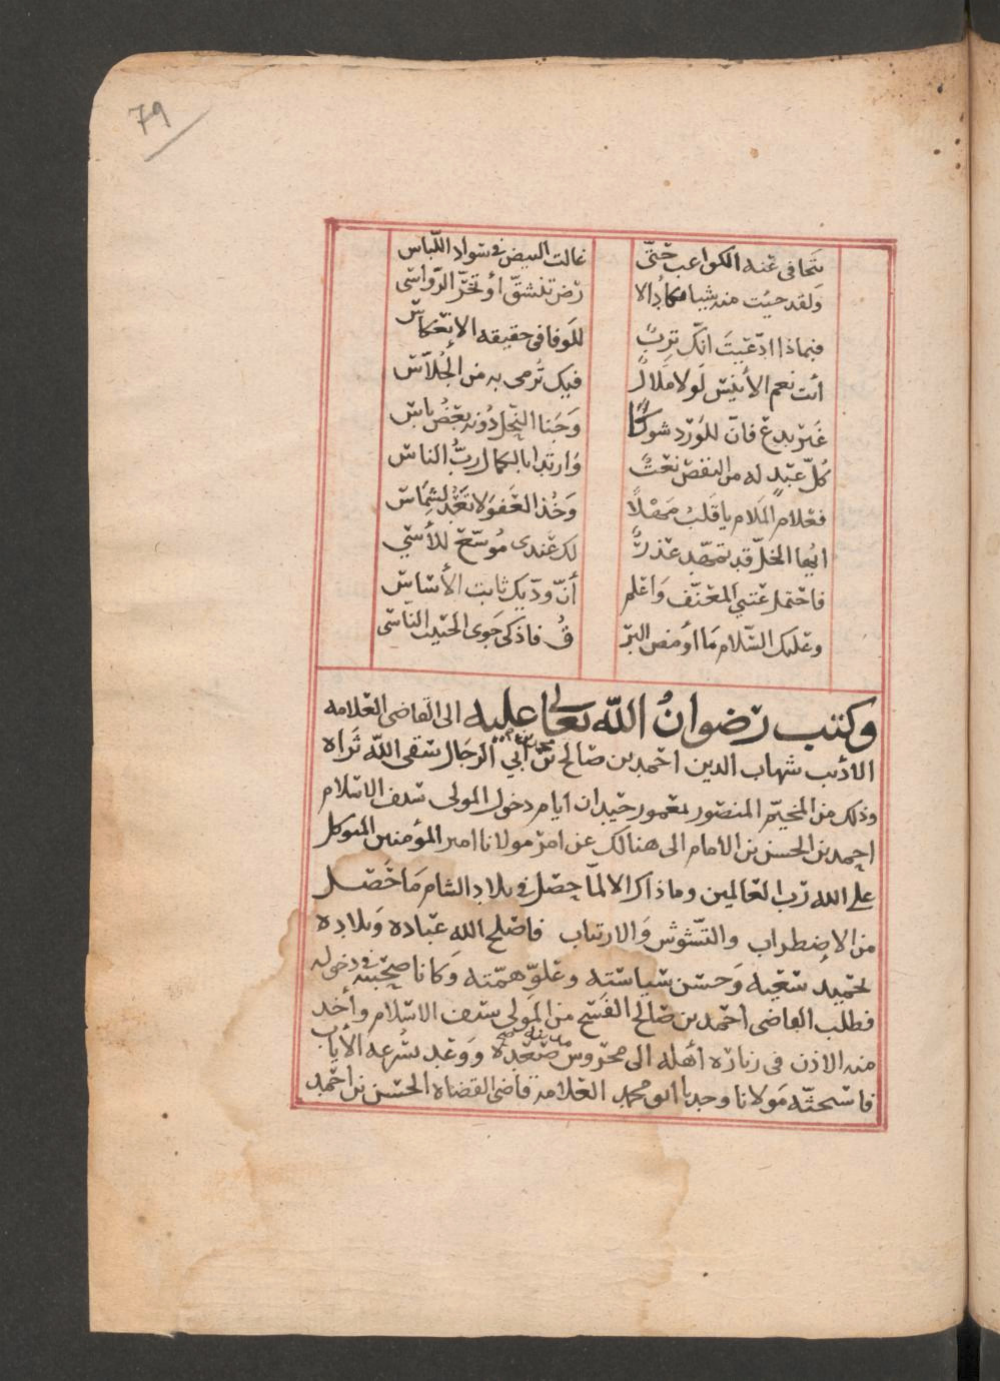 79
يتجافى عنه الكواعب حتّى غالت البيض في سواد اللّباس
ولقد حيّت منه شيبا فكاد الا رض تنشقّ أو تخرّ الرّواسي
فبماذا ادّعيت انّك تربٌ للوفا في حقيقه الانعكاس
أنت نعم الأنيس لولا ملالٌ فيك تُرمى به من الجُلّاس
غير بدع فانّ للورد شوكًا وجنا النّحل دونه بعض باس
كلّ عبد له من النقص نعتٌ وارتدا بالكمال ربُّ الناس
فعلام الملام يا قلب مهلًا وخذ العفو لا تعد لشماس
ايّها الخلّ قد تمهّد عذرٌ لك عندي موسّع للأسي
فاحتمل عتبي المعنّف واعلم أنّ ودّيك ثابت الأساس
وعليك السّلام ما أومض البر ق فاذكى جوى الحبيب النّاسي
وكتب رضوانُ اللّه تعالى عليه الى القاضي العلامه
الاديب شهاب الدين احمد بن صالح بن أبي الرجال سقى اللّه ثراه
وذلك من المخيّم المنصور بمعمور حيدان ايام دخول المولى شرف الاسلام
احمد بن الحسن بن الامام الى هنالك عن امر مولانا امير المؤمنين المتوكل
على الله ربّ العالمين وما ذاك الا لمّا حصل في بلاد الشام ما حصل
من الاضطراب والتّشوّش والارتياب فاصلح الله عباده وبلاده
بحميد سعيه وحسن سياسته وعلوّ همّته وكانا صحبته في دخوله
فطلب القاضي احمد بن صالح الفسح من المولى شرف الاسلام وأخذ
منه الاذن في زياره أهله الى محروس مدينة صعده ووعد بسُرعه الأياب
فاستحثّه مولانا وحيدنا ابو محمد العلامه قاضي القضاه الحسن بن احمد